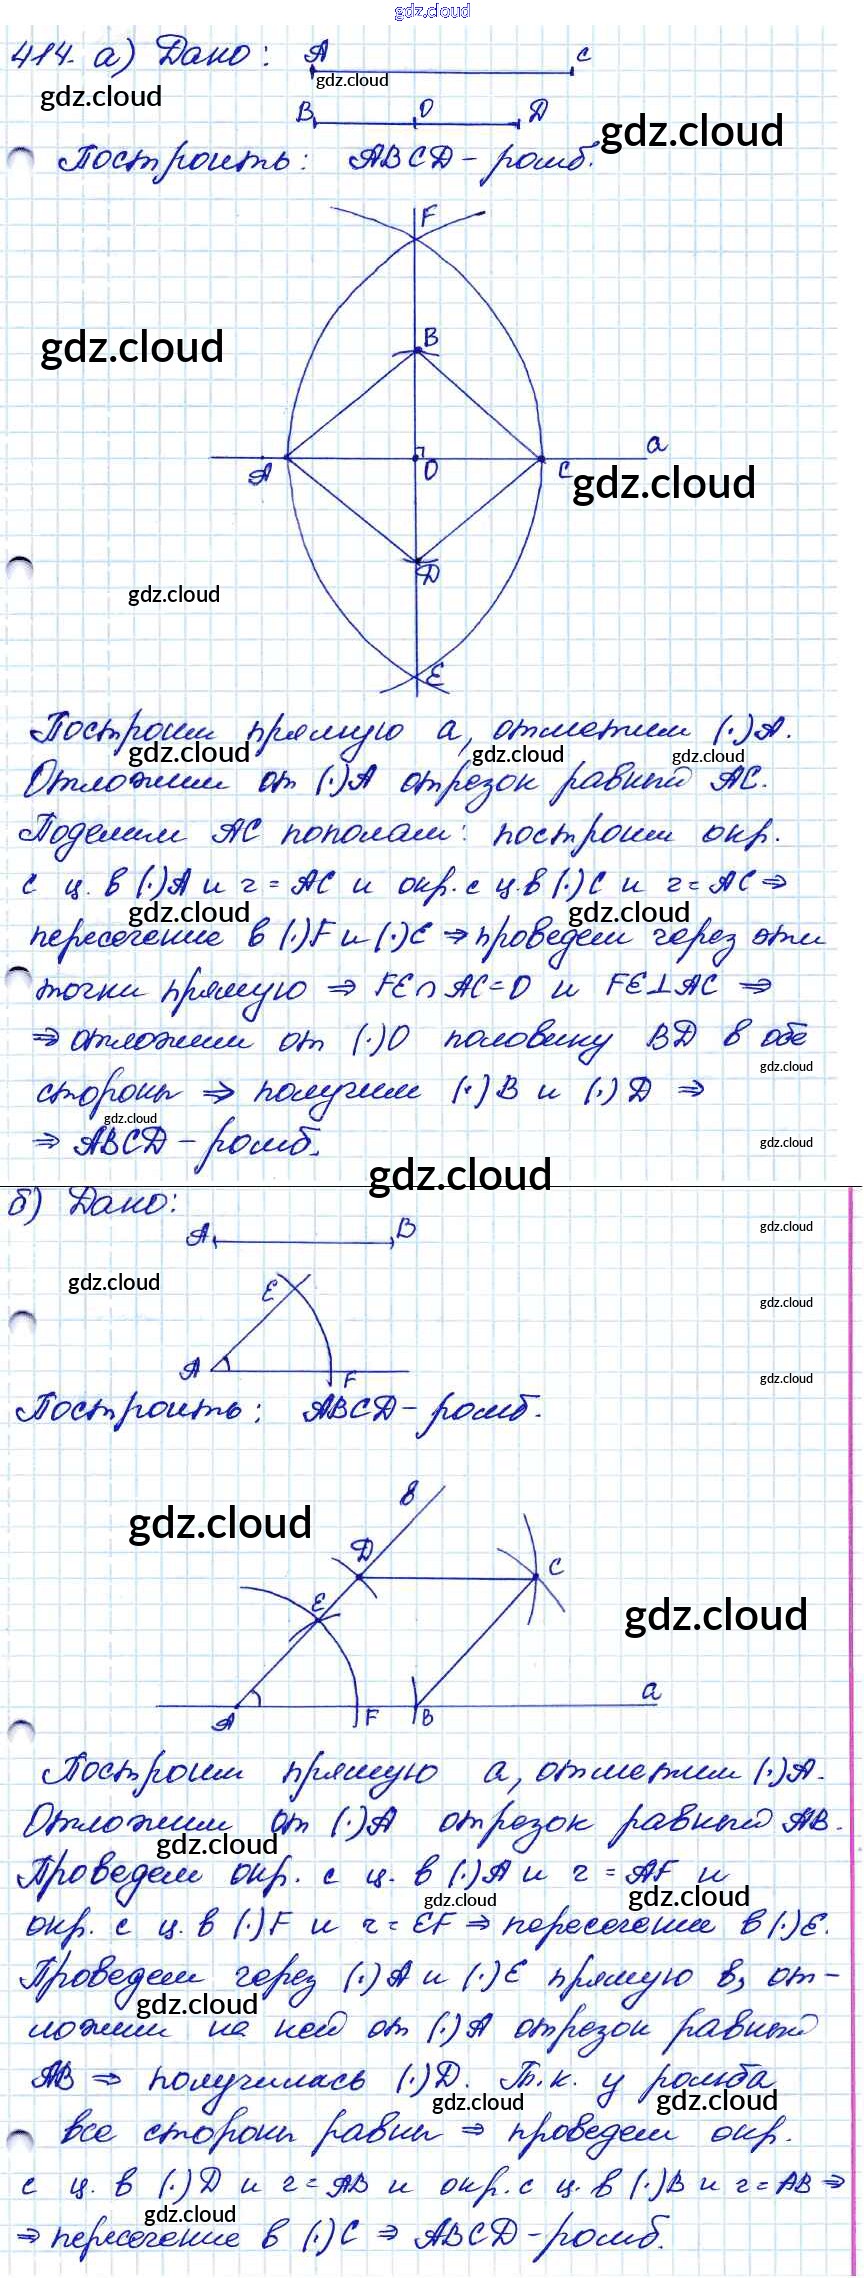 gdz.cloud
414. а) Дано: A C
gdz.cloud gdz.cloud
B O D
gdz.cloud
Построить: ABCD - ромб.
F
gdz.cloud
B
a
A O C
gdz.cloud
D
gdz.cloud
E
Построим прямую a, отметим (·)A.
gdz.cloud gdz.cloud gdz.cloud
Отложим от (·)A отрезок равный AC.
Поделим AC пополам: построим окр.
с ц. в (·)A и r = AC и окр. с ц. в (·)C и r = AC ⇒
gdz.cloud gdz.cloud
пересечение в (·)F и (·)E ⇒ проведем через эти
точки прямую ⇒ FE ∩ AC = O и FE ⊥ AC ⇒
⇒ отложим от (·)O половину BD в обе
gdz.cloud
стороны ⇒ получим (·)B и (·)D ⇒
gdz.cloud
⇒ ABCD - ромб.
gdz.cloud
gdz.cloud
б) Дано:
A B
gdz.cloud
gdz.cloud
E
gdz.cloud
A F
gdz.cloud
Построить: ABCD - ромб.
в
gdz.cloud
D C
E
gdz.cloud
a
A F B
Построим прямую a, отметим (·)A.
Отложим от (·)A отрезок равный AB.
gdz.cloud
Проведем окр. с ц. в (·)A и r = AF и
gdz.cloud gdz.cloud
окр. с ц. в (·)F и r = EF ⇒ пересечение в (·)E.
Проведем через (·)A и (·)E прямую в, от-
gdz.cloud
ложим на ней от (·)A отрезок равный
AB ⇒ получилась (·)D. Т.к. у ромба
gdz.cloud gdz.cloud
все стороны равны ⇒ проведем окр.
с ц. в (·)D и r = AB и окр. с ц. в (·)B и r = AB ⇒
gdz.cloud
⇒ пересечение в (·)C ⇒ ABCD - ромб.